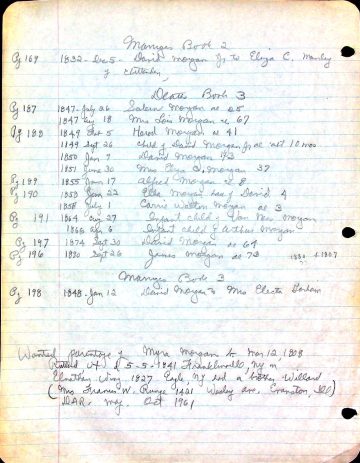 Marriges Book 2
Pg 169 1832-Dec 5- David Morgan Jr to Eliza C. Manley
of Chittenden
Death Book 3
Pg 187 1847-July 26 Morgan ae 25
1847 Aug 18 Mrs Lois Morgan ae 67
Pg 188 1849 5 Morgan ae 41
1849 Sept 26 child of David Morgan Jr ae 10 mos
1850 Jan 7 David Morgan
1851 June 30 Mrs Eliza C. Morgan 37
Pg 189 1855 17 Alfred Morgan ae 8
Pg 190 1858 Jan 22 Ella Morgan dau of David 4
1858 July 1 Carrie Morgan ae 3
Pg 191 1864 Aug 27 Infant child of Van Ness Morgan
1866 6 Infant child of Arthur Morgan
Pg 197 1874 Sept 30 David Morgan ae 64
Pg 196 1880 Sept 26 James Morgan ae 73 1807
Marriges Book 3
Pg 198 1848-Jan 12 David Morgan to Mrs Electa
Wanted parentage of Myra Morgan b. Mar 12 1808
Rutland Vt d 5-5-1841 Franklinville, NY m
Jonathan Wing 1827 Eagle, NY had a brother Willard
(Mrs Francis W. Runge 1421 Wesley Ave. Evanston, Ill)
DAR. mag Oct 1961